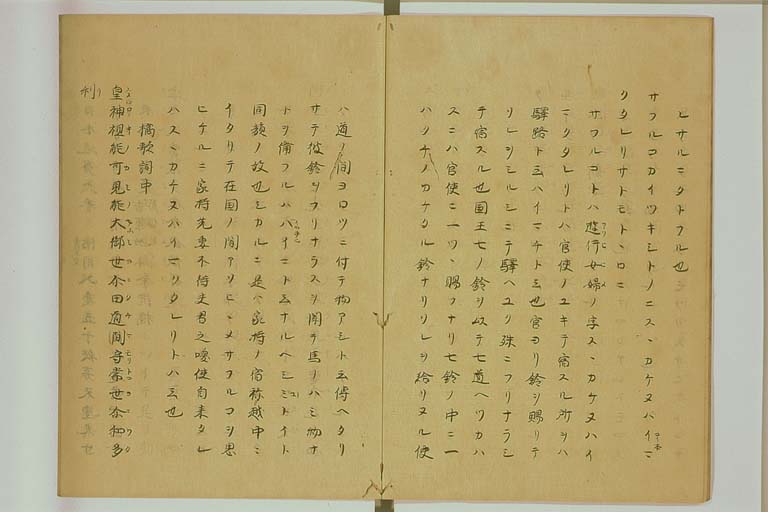 ヒサルニタトフル也
サフルコカイツキシトノニスヽカケヌハイマ
クタレリサトモトヽロニ
サフルコトハ遊行女婦ノ字スヽカケヌハイ
マクタレリトハ官使ノユキテ宿スル所ヲハ
驛路ト云ハイマチト云也官ヨリ鈴ヲ賜リテ
ソレヲシルシニテ驛ヘユク殊ニフリナラシ
テ宿スル也国王七ノ鈴ヲ以テ七道ヘツカハ
スニハ官使ニ一ツヽ賜フナリ七鈴ノ中ニ一
ハクチノカケタル鈴ナリソレヲ給リヌル使
ハ道ノ間ヨロツニ付テ拘アシト云傳ヘタリ
サテ彼鈴ヲフリナラスヲ聞テ馬ノハミ物ナ
トヲ備フルハハイマト云ナルヘシミコトイト
同族ノ故也シカルニ是ハ家持ノ宿祢越中ニ
イタリテ在国ノ間アソヒヽメサフルコヲ思
ヒケルニ家持先妻不待夫君之喚使自来タレ
ハスヽカケヌハイマクタレリトハ云也
橘歌詞中
皇神祖能可見能大御世尓田道間守常世尓和多
利